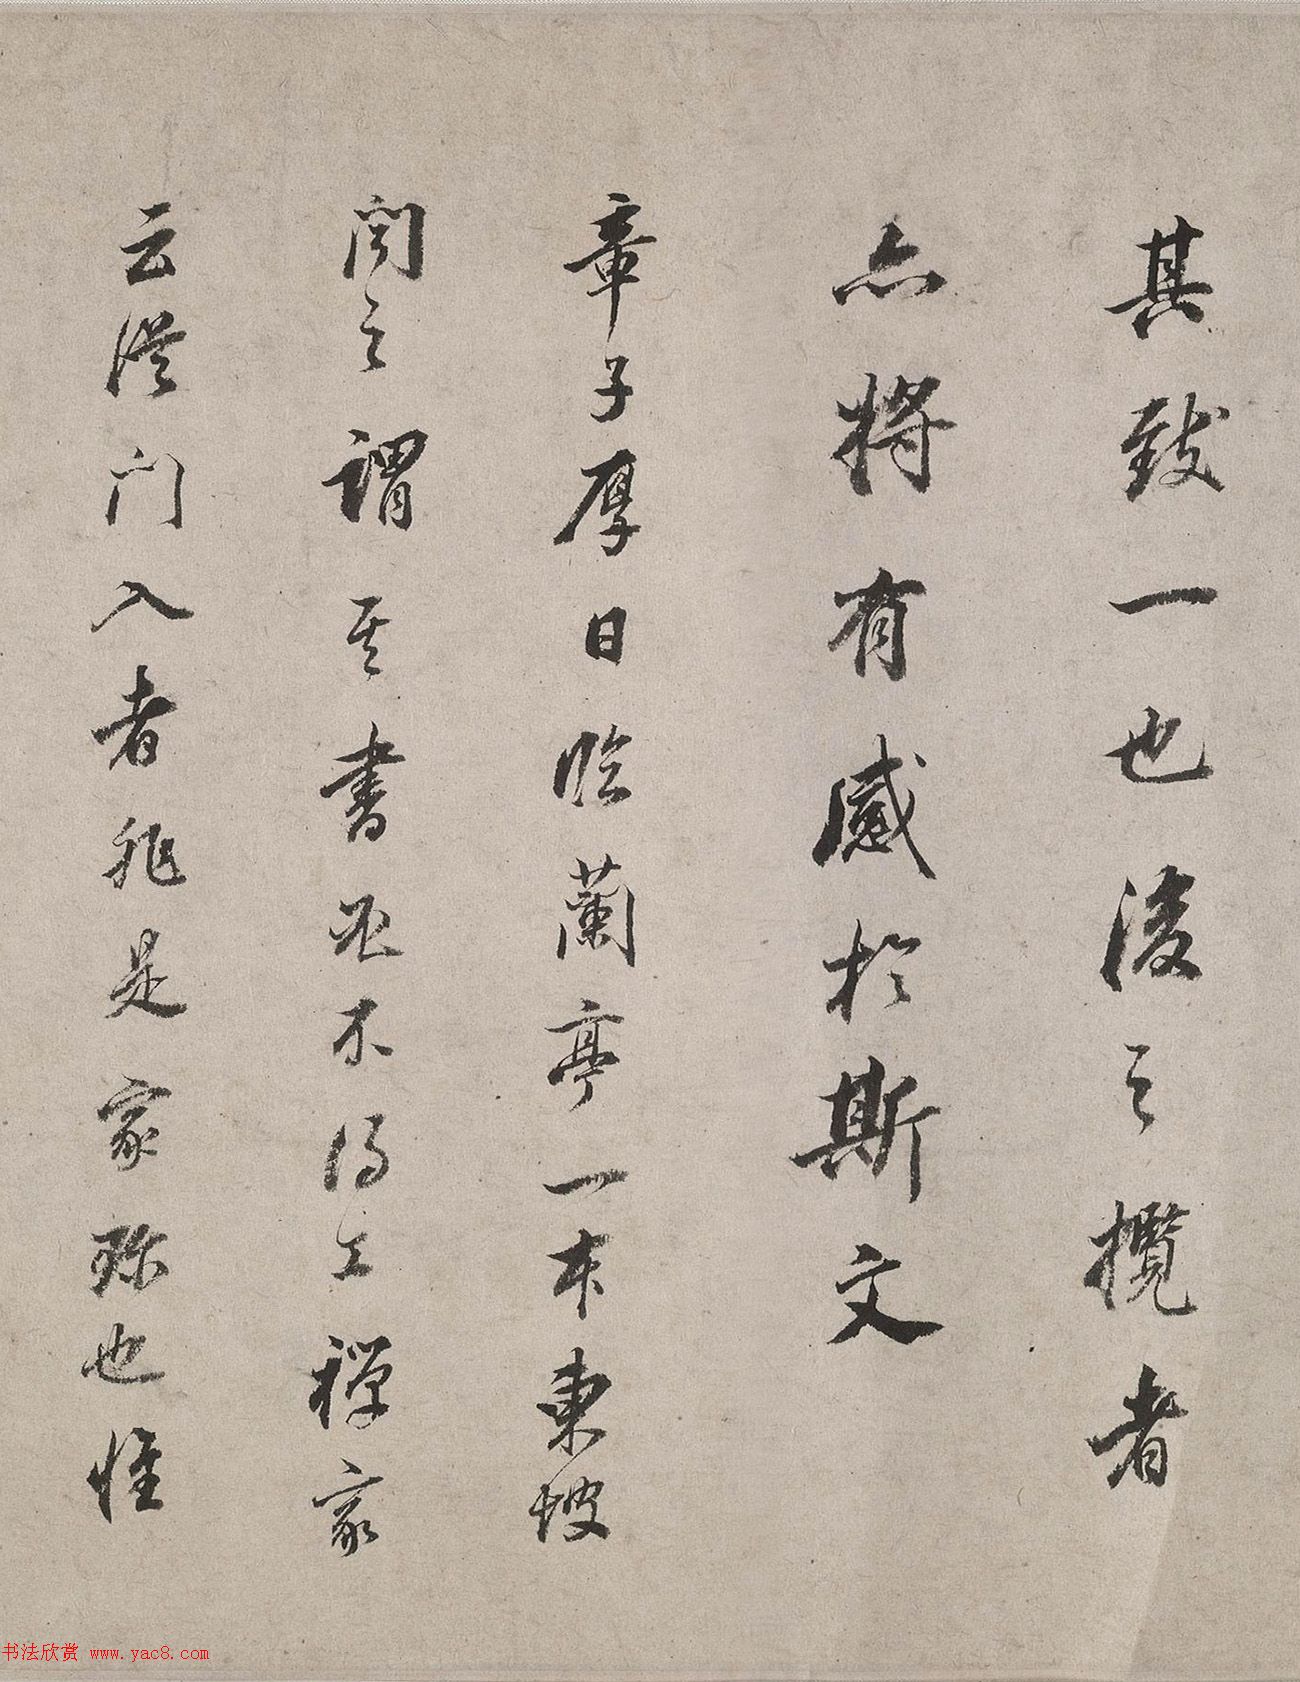 其致一也後之攬者
亦將有感於斯文
章子厚日臨蘭亭一本東坡
聞之謂其書必不得工禪家
云從門入者非是家珍也惟
书法欣赏 www.yac8.com